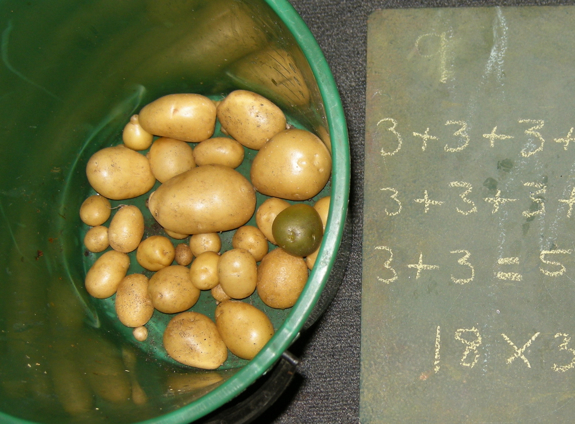 3+3+3+
3+3+3+
3+3=5
18×3